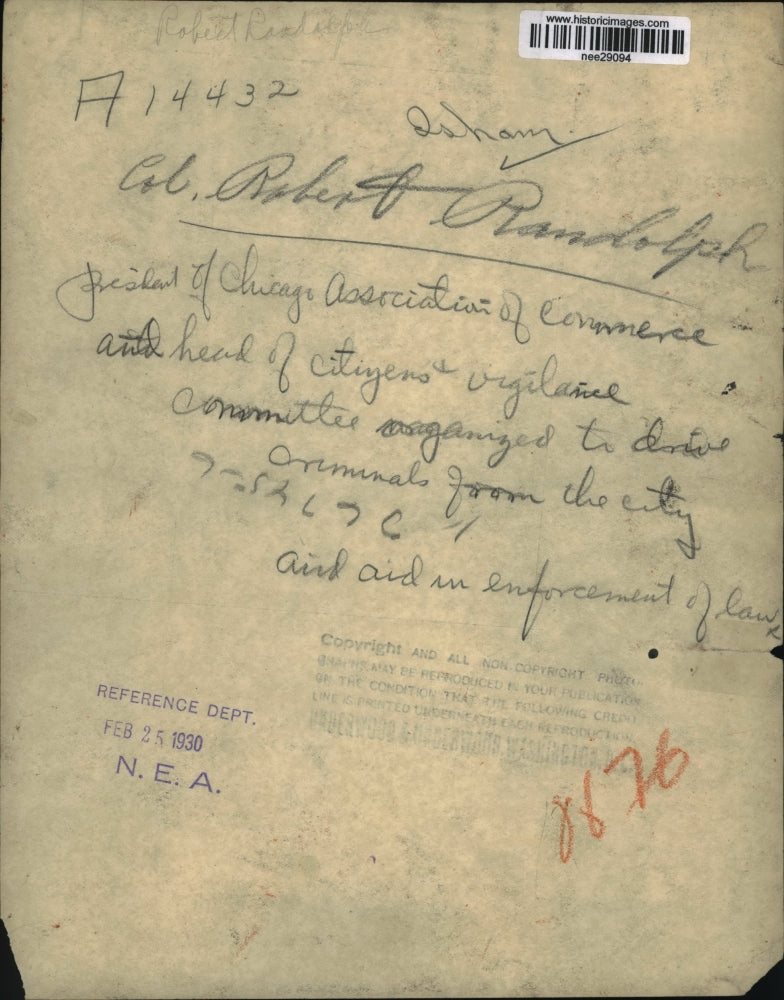 Robert Randolph
www.historicimages.com
nee29094
A 14432
Isham
Col. Robert Randolph
president of Chicago Association of Commerce
and head of citizens vigilance
committee organized to drive
criminals from the city
and aid in enforcement of law
Copyright AND ALL NON-COPYRIGHT PHOTO-
GRAPHS MAY BE REPRODUCED IN YOUR PUBLICATION
ON THE CONDITION THAT THE FOLLOWING CREDIT
LINE IS PRINTED UNDERNEATH EACH REPRODUCTION
UNDERWOOD & UNDERWOOD
REFERENCE DEPT.
FEB 25 1930
N. E. A.
8876